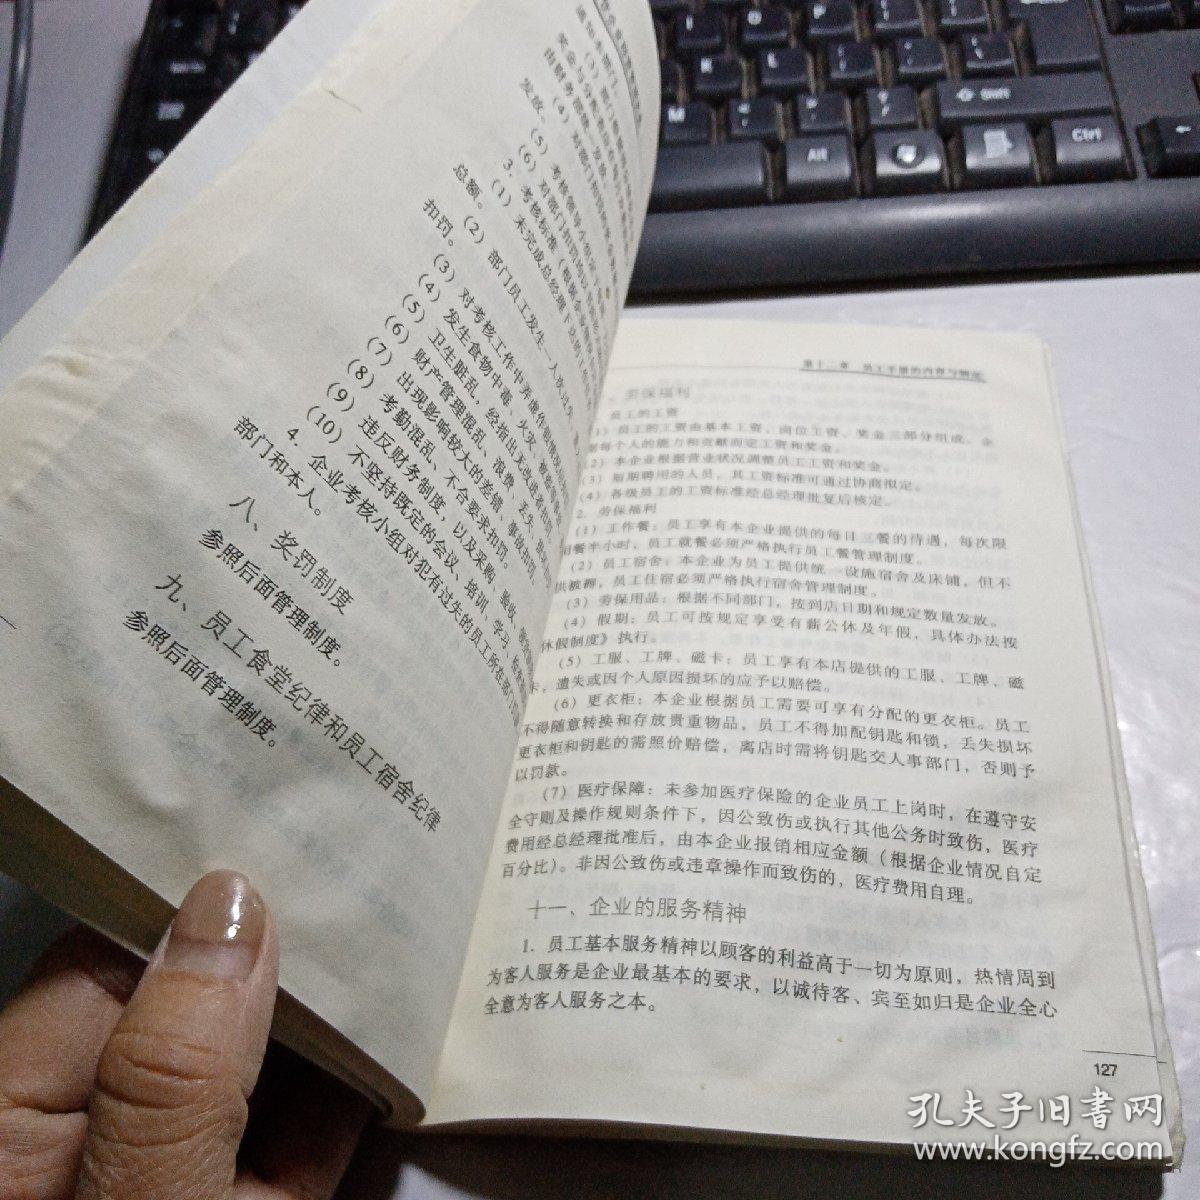 发放。
(5) 考核领导小组
(6) 对部门扣罚的
3. 考核标准 (根据企业
(1) 未完成总经理下达的
总额。
(2) 部门员工发生一人次过失,
扣罚。
(3) 对考核工作中弄虚作假
(4) 发生食物中毒、火灾、
(5) 卫生脏乱,经指出无改进者扣罚。
(6) 财产管理混乱、浪费、丢失,
(7) 出现影响较大的差错、事故扣罚。
(8) 考勤混乱、不合要求扣罚。
(9) 违反财务制度,以及采购、验收、
(10) 不坚持既定的会议、培训、学习、
4. 企业考核小组对犯有过失的员工所在部门
部门和本人。
八、奖罚制度
参照后面管理制度。
九、员工食堂纪律和员工宿舍纪律
参照后面管理制度。
第十二章 员工手册的内容与制定
、劳保福利
员工的工资
1) 员工的工资由基本工资、岗位工资、奖金三部分组成。企
据每个人的能力和贡献而定工资和奖金。
(2) 本企业根据营业状况调整员工工资和奖金。
(3) 短期聘用的人员,其工资标准可通过协商拟定。
(4) 各级员工的工资标准经总经理批复后核定。
2. 劳保福利
(1) 工作餐:员工享有本企业提供的每日三餐的待遇,每次限
用餐半小时,员工就餐必须严格执行员工餐管理制度。
(2) 员工宿舍:本企业为员工提供统一设施宿舍及床铺,但不
供被褥,员工住宿必须严格执行宿舍管理制度。
(3) 劳保用品:根据不同部门,按到店日期和规定数量发放。
(4) 假期:员工可按规定享受有薪公休及年假,具体办法按
休假制度》执行。
(5) 工服、工牌、磁卡:员工享有本店提供的工服、工牌、磁
卡,遗失或因个人原因损坏的应予以赔偿。
(6) 更衣柜:本企业根据员工需要可享有分配的更衣柜。员工
不得随意转换和存放贵重物品,员工不得加配钥匙和锁,丢失损坏
更衣柜和钥匙的需照价赔偿,离店时需将钥匙交人事部门,否则予
以罚款。
(7) 医疗保障:未参加医疗保险的企业员工上岗时,在遵守安
全守则及操作规则条件下,因公致伤或执行其他公务时致伤,医疗
费用经总经理批准后,由本企业报销相应金额(根据企业情况自定
百分比)。非因公致伤或违章操作而致伤的,医疗费用自理。
十一、企业的服务精神
1. 员工基本服务精神以顾客的利益高于一切为原则,热情周到
为客人服务是企业最基本的要求,以诚待客、宾至如归是企业全心
全意为客人服务之本。
127
Shift
Alt
Ctrl
孔夫子旧书网
www.kongfz.com